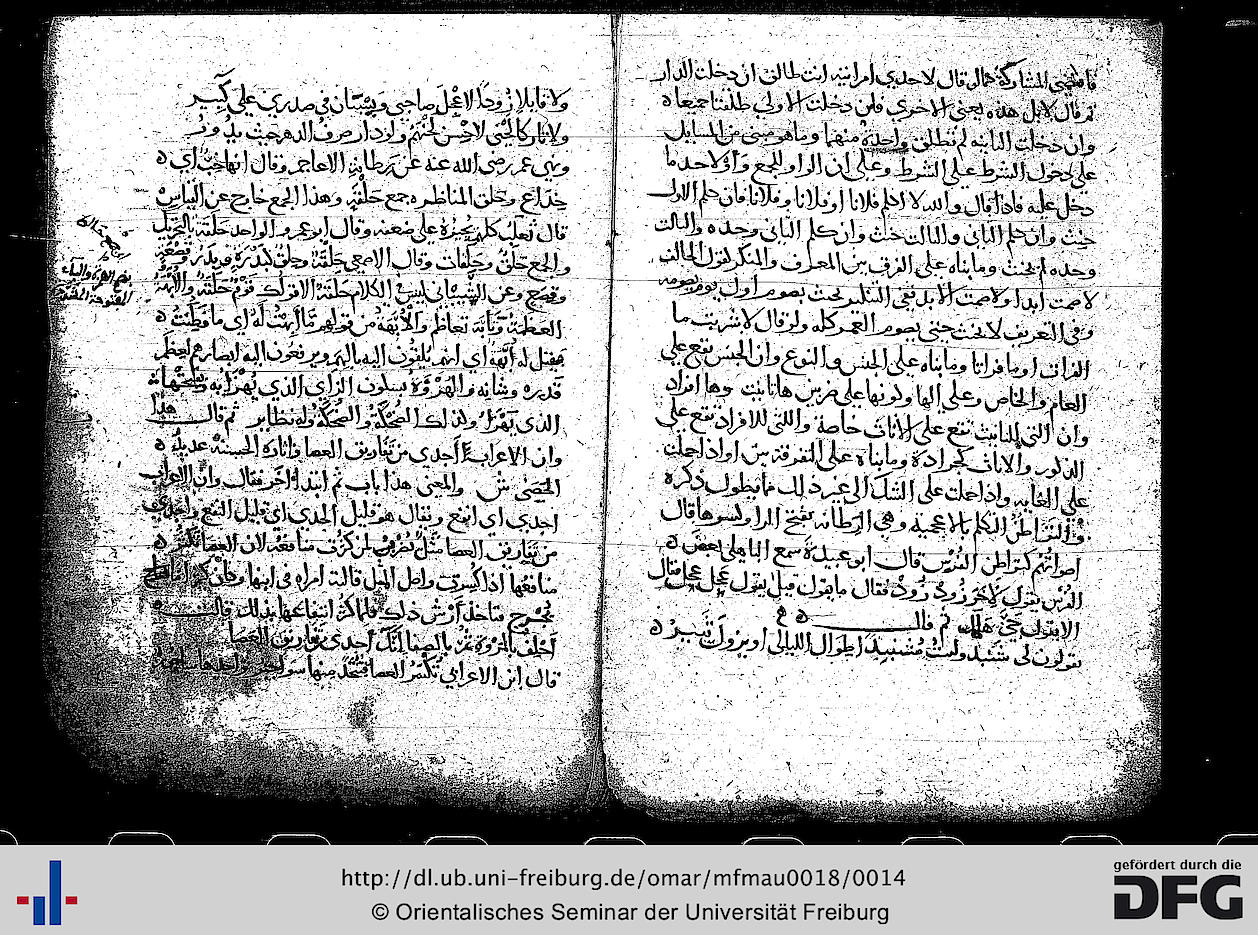 فاقتضى المشاركة كما لو قال لاحدى امراتيه انت طالق ان دخلت الدار
ثم قال لا بل هذه يعنى الاخرى فان دخلت الاولى طلقتا جميعا
وان دخلت الثانيه لم تطلق واحدة منهما وما هو مبنى من المسايل
على دخول الشرط على الشرط وعلى ان الواو للجمع و او لاحد ما
دخل عليه فاذا قال والله لا اكلم فلانا او فلانا وفلانا فان كلم الاول
حنث وان كلم الثانى والثالث حنث وان كلم الثانى وحده والثالث
وحده لم يحنث وما بناه على الفرق بين المعرف والمنكر لقول الحالف
لا صمت ابدا ولا صمت الابد ففى التنكير يحنث بصوم اول يوم
وفى التعريف لا يحنث حتى يصوم العمر كله ولو قال لا شربت ما
الفرات او ما فراتا وما بناه على الجنس والنوع وان الجنس يقع على
العام والخاص وعلى
وان التى للتانيث تقع على الاناث خاصة واللتى للافراد تقع على
الذكور والاناث كجرادة وما بناه على التفرقة بين او اذا حملت
على الغايه واذا حملت على الشك الى غير ذلك مما يطول ذكره
والتراطن التكلم بالاعجمية وهى الرطانه بفتح الرا وكسرها قال
اصواتهم كتراطن الفرس قال ابو عبيدة سمع الباهلى بعض
الفرس يقول لاخر زود زود فقال ما يقول قيل يقول عجل عجل فقال
الا يقول حى هلك ثم قال
يقولون لى شنبذ ولست مشنبذا طوال الليالى او يزول ثبير
ولا قايلا زوذا لاعجل صاحبى وبستان فى صدرى على كبير
ولا تاركا لحنى لاحسن لحنهم ولو دار صرف الدهر حيث يدور
ونهى عمر رضى الله عنه عن رطانة الاعاجم وقال انها خب اى
خداع وحلق المناظره جمع حلقة وهذا الجمع خارج عن القياس
قال ثعلب كلهم يجيزه على ضعفه وقال ابو عمرو الواحد حلقة بالتحريك
والجمع حلق وحلقات وقال الاصمعى حلقة وحلق كبدرة وبدر وقصعة
وقصع وعن الشيبانى ليس فى الكلام حلقة الا قولك قوم حلقة والابهة
العظمة وتابه تعاظم والابهة من قولهم ما ابهت له اى ما فطنت
فقيل له ابهة اى انهم يلتفتون اليه بالهم ويرفعون اليه ابصارهم لعظم
قدره وشانه والهزؤة بسكون الزاى الذى يهزا به وبفتحها
الذى يهزا ولذلك الضحكة والضحكة وله نظاير ثم قال هذا
وان الاعراب اجدى من تفاريق العصا واثاره الحسنة عديد
الحصى ش والمعنى هذا باب ثم ابتدا اخر فقال وان الاعراب
اجدى اى انفع ويقال هو قليل الجدى اى قليل النفع واجدى
من تفاريق العصا مثل يضرب لمن كثرت منافعه لان العصا تكثر
منافعها اذا كسرت واصل المثل قالته امراه فى ابنها وكان
يجرح فتاخذ ارش ذلك فلما كثر انتفاعها بذلك قالت
احلف بالمروة ثم بالصفا انك اجدى من تفاريق العصا
قال ابن الاعرابى تكسر العصا فتتخذ منها ساجور
بفتح الهزة والباء
http://dl.ub.uni-freiburg.de/omar/mfmau0018/0014
© Orientalisches Seminar der Universität Freiburg
gefördert durch die
DFG